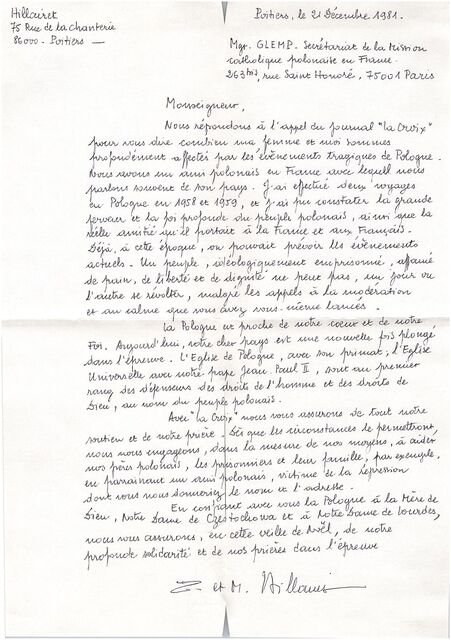 Hillairet
75 Rue de la Chanterie
86000 - Poitiers —
Poitiers, le 21 Décembre 1981.
Mgr. GLEMP. Secrétariat de la Mission
catholique polonaise en France.
263 bis, rue Saint Honoré, 75001 Paris
Monseigneur,
Nous répondons à l'appel du journal "la Croix"
pour vous dire combien ma femme et moi sommes
profondément affectés par les évènements tragiques de Pologne.
Nous avons un ami polonais en France avec lequel nous
parlons souvent de son pays. J'ai effectué deux voyages
en Pologne en 1958 et 1959, et j'ai pu constater la grande
ferveur et la foi profonde du peuple polonais, ainsi que la
réelle amitié qu'il portait à la France et aux Français.
Déjà, à cette époque, on pouvait prévoir les évènements
actuels. Un peuple, idéologiquement emprisonné, affamé
de pain, de liberté et de dignité ne peut pas, un jour ou
l'autre se révolter, malgré les appels à la modération
et au calme que vous avez vous-même lancés.
La Pologne est proche de notre cœur et de notre
Foi. Aujourd'hui, notre cher pays est une nouvelle fois plongé
dans l'épreuve. L'Eglise de Pologne, avec son primat; l'Eglise
Universelle avec notre pape Jean Paul II, sont au premier
rang des défenseurs des droits de l'homme et des droits de
Dieu, au nom du peuple polonais.
Avec "la Croix" nous vous assurons de tout notre
soutien et de notre prière. Dès que les circonstances le permettront,
nous nous engageons, dans la mesure de nos moyens, à aider
nos frères polonais, les prisonniers et leur famille, par exemple,
en parrainant un ami polonais, victime de la répression
dont vous nous donneriez le nom et l'adresse.
En confiant avec vous la Pologne à la Mère de
Dieu, Notre Dame de Częstochowa et à Notre Dame de Lourdes,
nous vous assurons, en cette veille de Noël, de notre
profonde solidarité et de nos prières dans l'épreuve
et M. Hillairet